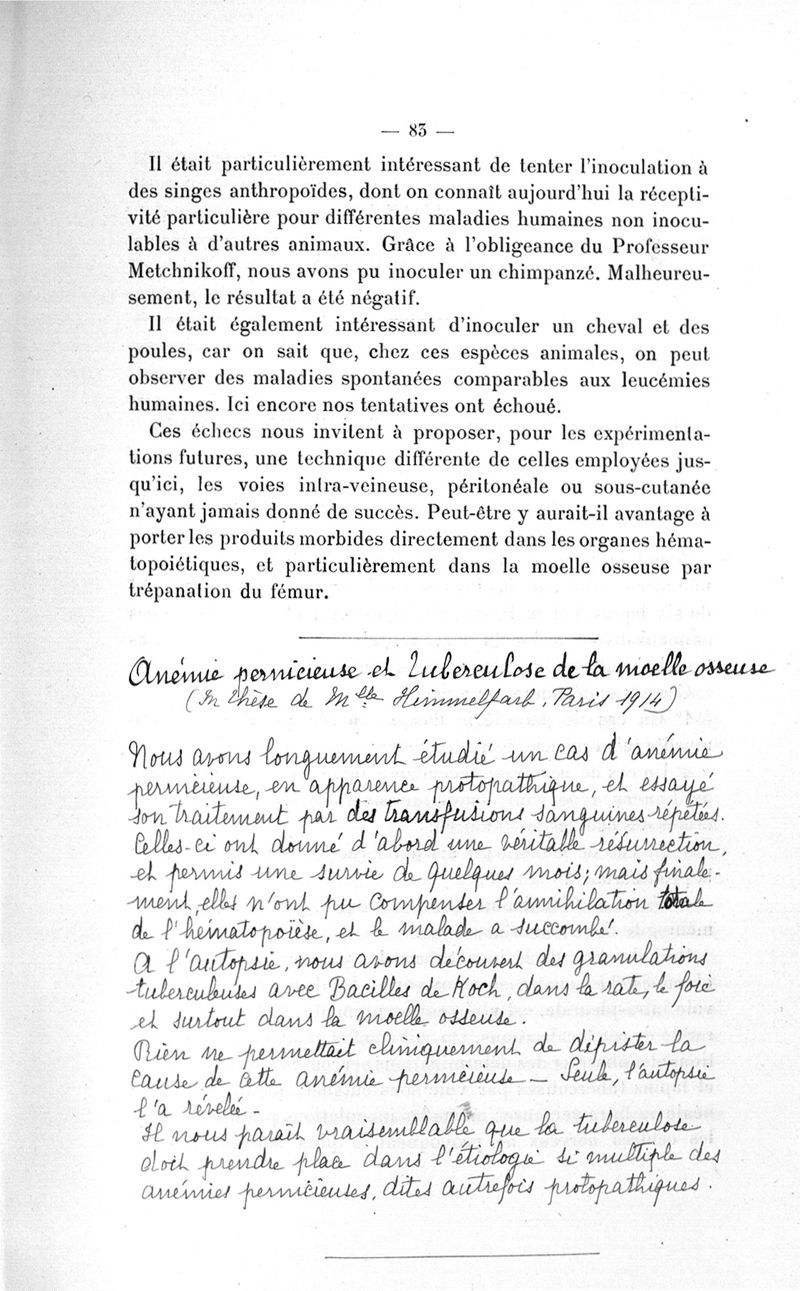 — 83 —
Il était particulièrement intéressant de tenter l'inoculation à
des singes anthropoïdes, dont on connaît aujourd'hui la récepti-
vité particulière pour différentes maladies humaines non inocu-
lables à d'autres animaux. Grâce à l'obligeance du Professeur
Metchnikoff, nous avons pu inoculer un chimpanzé. Malheureu-
sement, le résultat a été négatif.
Il était également intéressant d'inoculer un cheval et des
poules, car on sait que, chez ces espèces animales, on peut
observer des maladies spontanées comparables aux leucémies
humaines. Ici encore nos tentatives ont échoué.
Ces échecs nous invitent à proposer, pour les expérimenta-
tions futures, une technique différente de celles employées jus-
qu'ici, les voies intra-veineuse, péritonéale ou sous-cutanée
n'ayant jamais donné de succès. Peut-être y aurait-il avantage à
porter les produits morbides directement dans les organes héma-
topoiétiques, et particulièrement dans la moelle osseuse par
trépanation du fémur.
Anémie pernicieuse et Tuberculose de la moelle osseuse
(In Thèse de Mlle Himmelfarb, Paris 1914)
Nous avons longuement étudié un cas d'anémie
pernicieuse, en apparence protopathique, et essayé
son traitement par des transfusions sanguines répétées.
Celles-ci ont donné d'abord une véritable résurrection,
et permis une survie de quelques mois; mais finale-
ment, elles n'ont pu compenser l'annihilation totale
de l'hématopoïèse, et le malade a succombé.
A l'autopsie, nous avons découvert des granulations
tuberculeuses avec Bacilles de Koch, dans la rate, le foie
et surtout dans la moelle osseuse.
Rien ne permettait cliniquement de dépister la
cause de cette anémie pernicieuse — Seule, l'autopsie
l'a révélée -
Il nous paraît vraisemblable que la tuberculose
doit prendre place dans l'étiologie si multiple des
anémies pernicieuses, dites autrefois protopathiques.